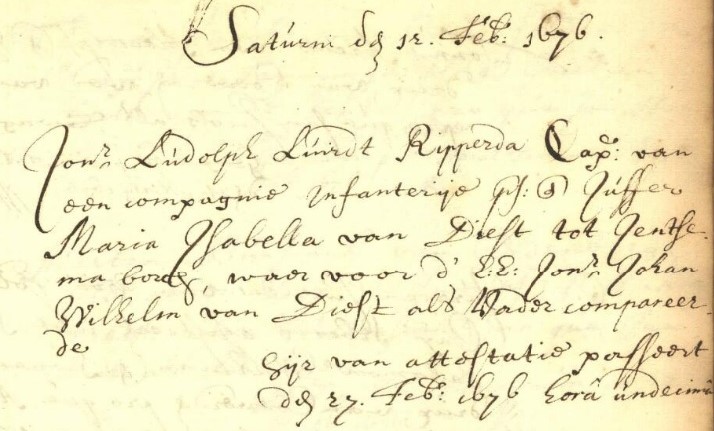 Saturni dē 12. Feb: 1676.
Jonr Ludolph Luirdt Ripperda Cap: van
een compagnie infanterije pt: @ Juffer
Maria Isabella van Diest tot Jentse-
ma borch, waer voor d' E:E: Jonr Johan
Wilhelm van Diest als Vader compareer-
de
hijr van attestatie passeert
dē 27. Feb: 1676 hora undecima